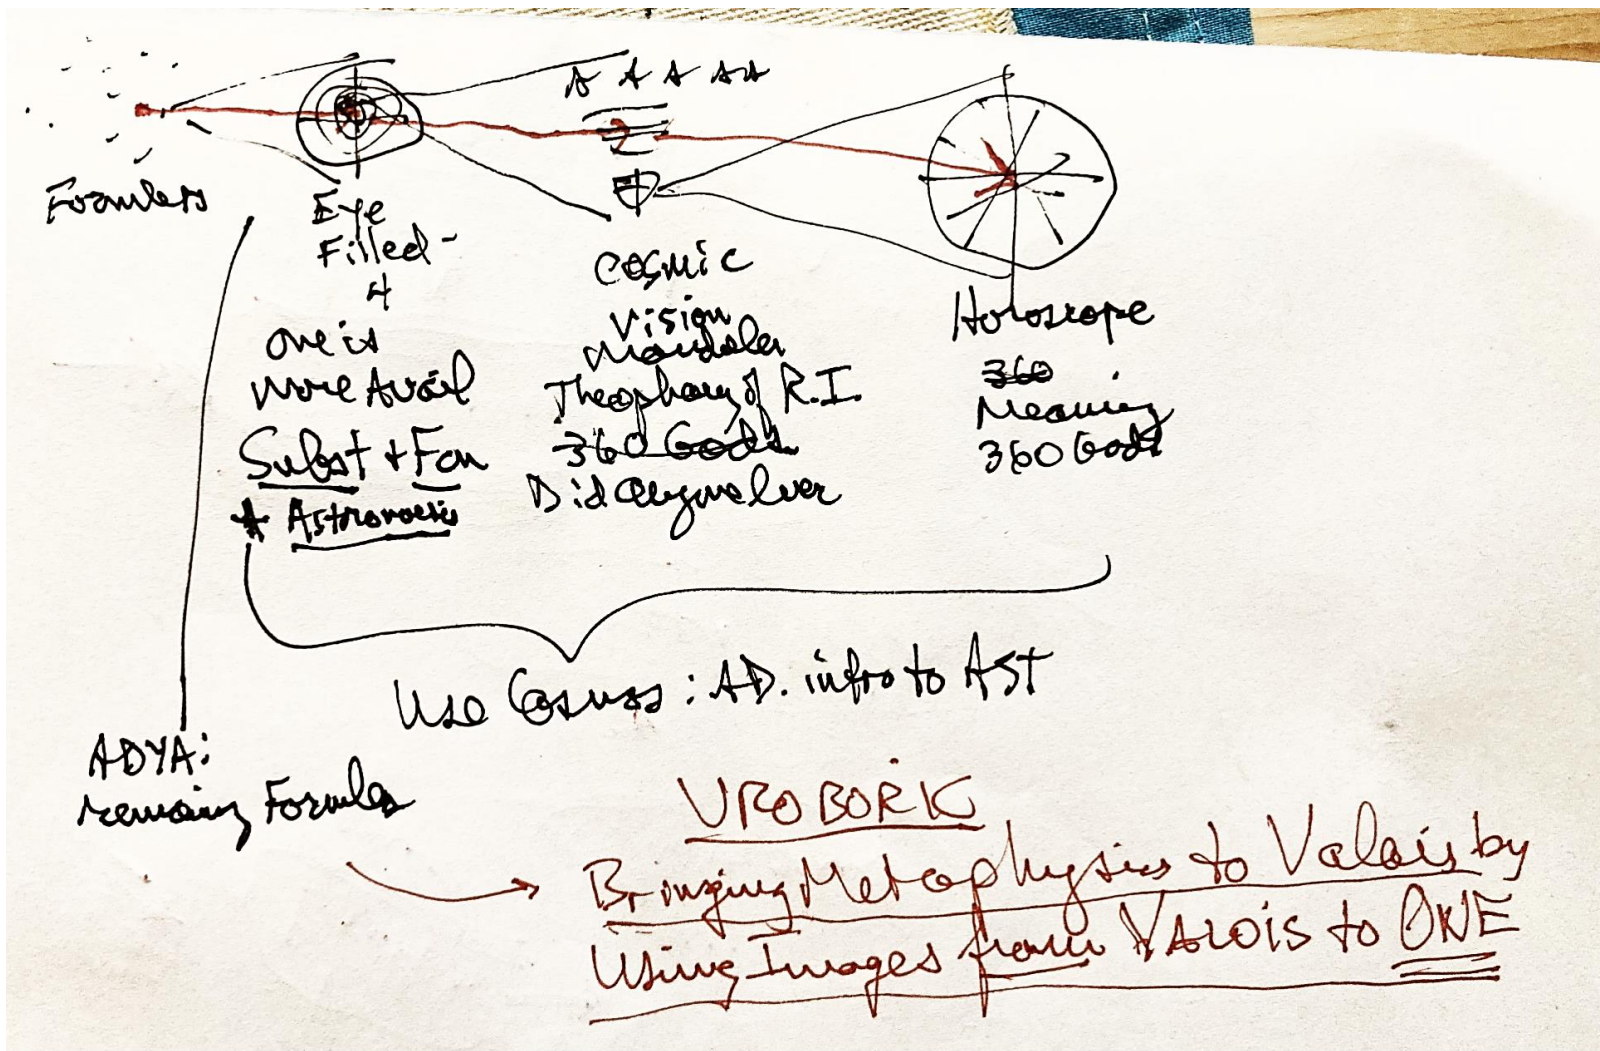 A A A AA
Formless
Eye
Filled -
4
one is
more Avail
Subst + Fon
* Astronoesis
Cosmic
Vision
Mandala
Theophany of R.I.
360 Gods
Did
Horoscope
360
Meaning
360 Gods
Use Cosmos : AD. intro to AST
ADYA:
remaining Formles
UROBORIK
Bringing Metaphysics to Valois by
Using Images from VALOIS to ONE